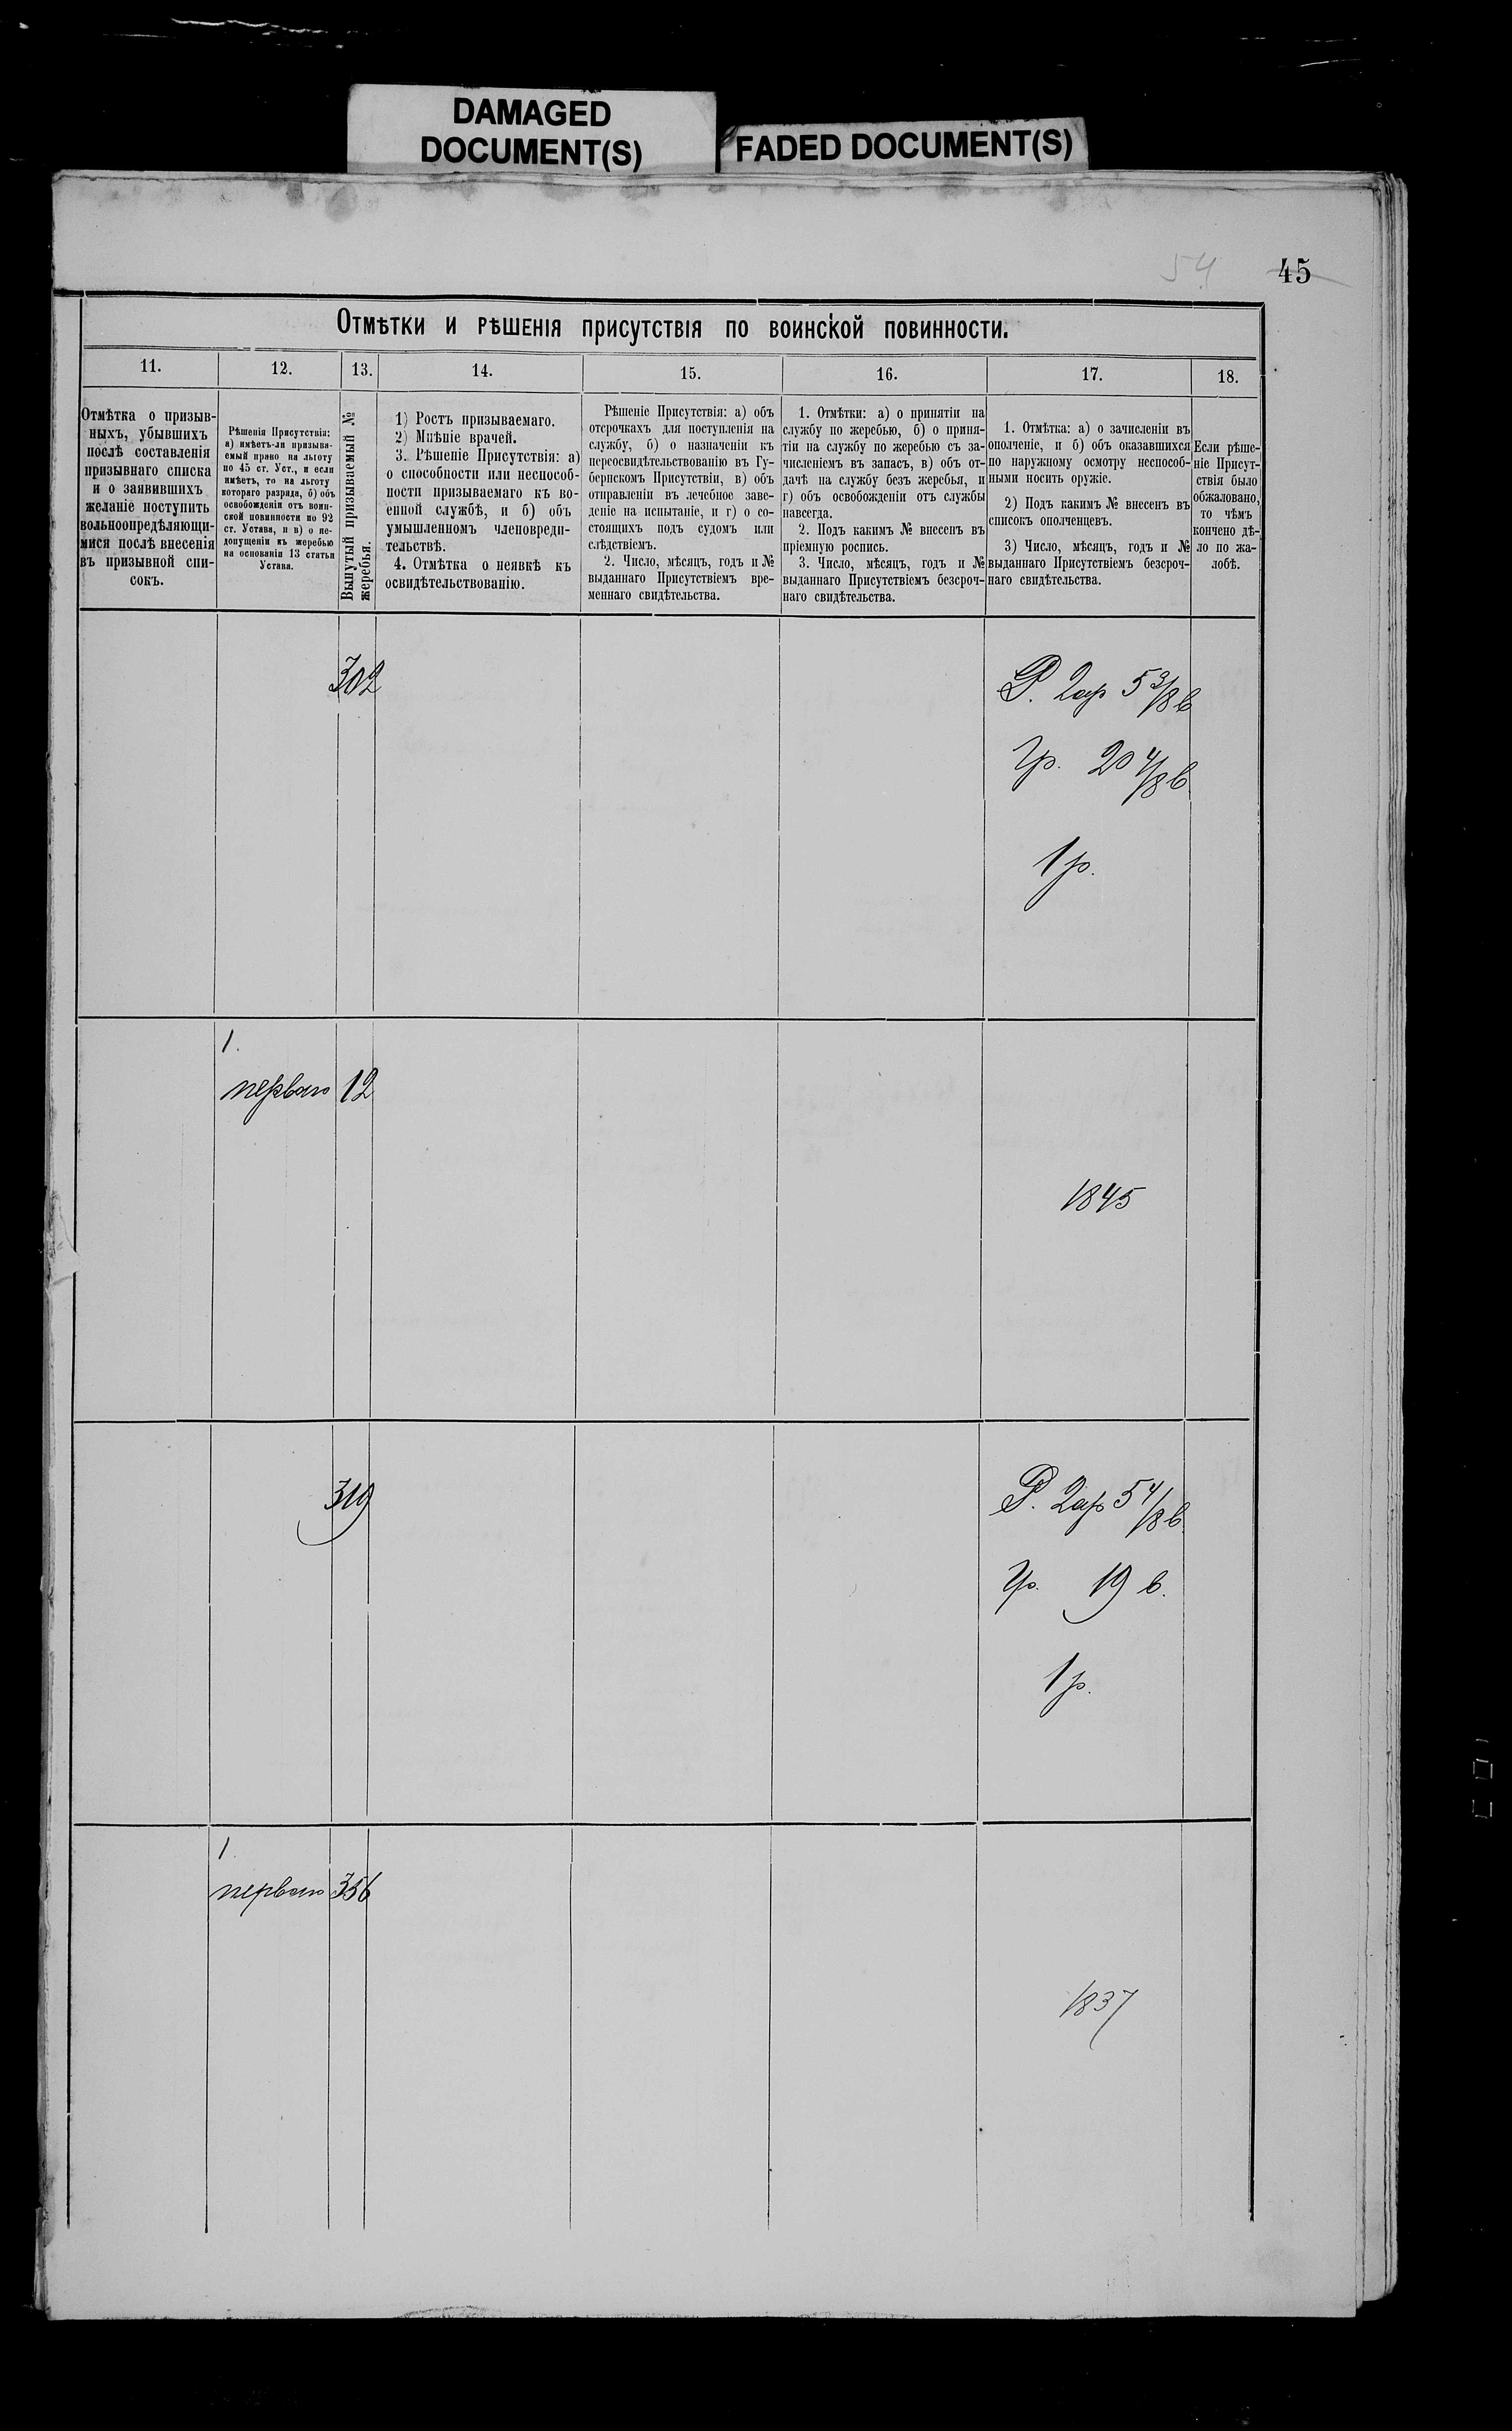 DAMAGED
DOCUMENT(S)
FADED DOCUMENT(S)
54
45
Отмѣтки и рѣшенія присутствія по воинской повинности.
11.
12.
13.
14.
15.
16.
17.
18.
Отмѣтка о призыв-
ныхъ, убывшихъ
послѣ составленія
призывнаго списка
и о заявившихъ
желаніе поступить
вольноопредѣляющи-
мися послѣ внесенія
въ призывной спи-
сокъ.
Рѣшенія Присутствія:
а) имѣетъ-ли призыва-
емый право на льготу
по 45 ст. Уст., и если
имѣетъ, то на льготу
котораго разряда, б) объ
освобожденіи отъ воин-
ской повинности по 92
ст. Устава, и в) о не-
допущеніи къ жеребью
на основаніи 13 статьи
Устава.
Вынутый призываемый №
жеребья.
1) Ростъ призываемаго.
2) Мнѣніе врачей.
3. Рѣшеніе Присутствія: а)
о способности или неспособ-
ности призываемаго къ во-
енной службѣ, и б) объ
умышленномъ членовреди-
тельствѣ.
4. Отмѣтка о неявкѣ къ
освидѣтельствованію.
Рѣшеніе Присутствія: а) объ
отсрочкахъ для поступленія на
службу, б) о назначеніи къ
переосвидѣтельствованію въ Гу-
бернскомъ Присутствіи, в) объ
отправленіи въ лечебное заве-
деніе на испытаніе, и г) о со-
стоящихъ подъ судомъ или
слѣдствіемъ.
2. Число, мѣсяцъ, годъ и №
выданнаго Присутствіемъ вре-
меннаго свидѣтельства.
1. Отмѣтки: а) о принятіи на
службу по жеребью, б) о приня-
тіи на службу по жеребью съ за-
численіемъ въ запасъ, в) объ от-
дачѣ на службу безъ жеребья, и
г) объ освобожденіи отъ службы
навсегда.
2. Подъ какимъ № внесенъ въ
пріемную роспись.
3. Число, мѣсяцъ, годъ и №
выданнаго Присутствіемъ безсроч-
наго свидѣтельства.
1. Отмѣтка: а) о зачисленіи въ
ополченіе, и б) объ оказавшихся
по наружному осмотру неспособ-
ными носить оружіе.
2) Подъ какимъ № внесенъ въ
списокъ ополченцевъ.
3) Число, мѣсяцъ, годъ и №
выданнаго Присутствіемъ безсроч-
наго свидѣтельства.
Если рѣше-
ніе Присут-
ствія было
обжаловано,
то чѣмъ
кончено дѣ-
ло по жа-
лобѣ.
302
Р. 2ар 5 3/8 в
Гр. 20 4/8 в
1 р.
1.
перваго
12
1845
319
Р. 2ар 5 4/8 в
Гр. 19 в.
1 р.
1
перваго
356
1837